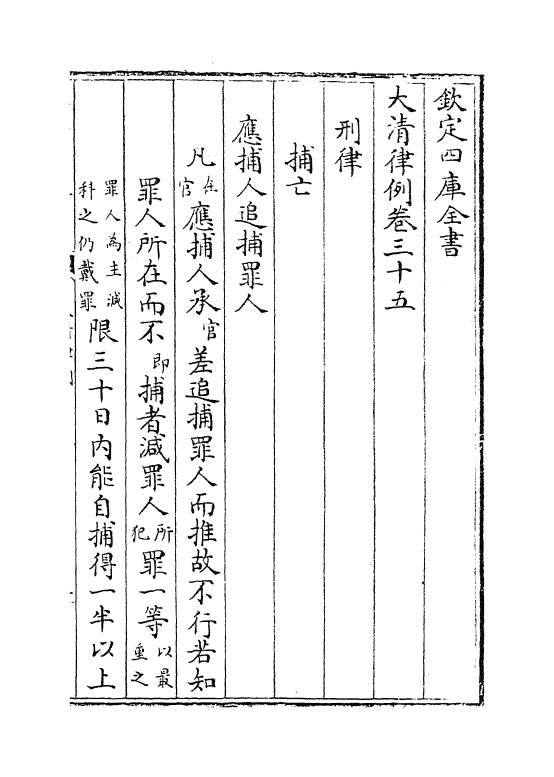 欽定四庫全書
大清律例卷三十五
刑律
捕亡
應捕人追捕罪人
凡在官應捕人承官差追捕罪人而推故不行若知
罪人所在而不即捕者減罪人所犯罪一等以最重之
罪人為主減科之仍戴罪限三十日內能自捕得一半以上